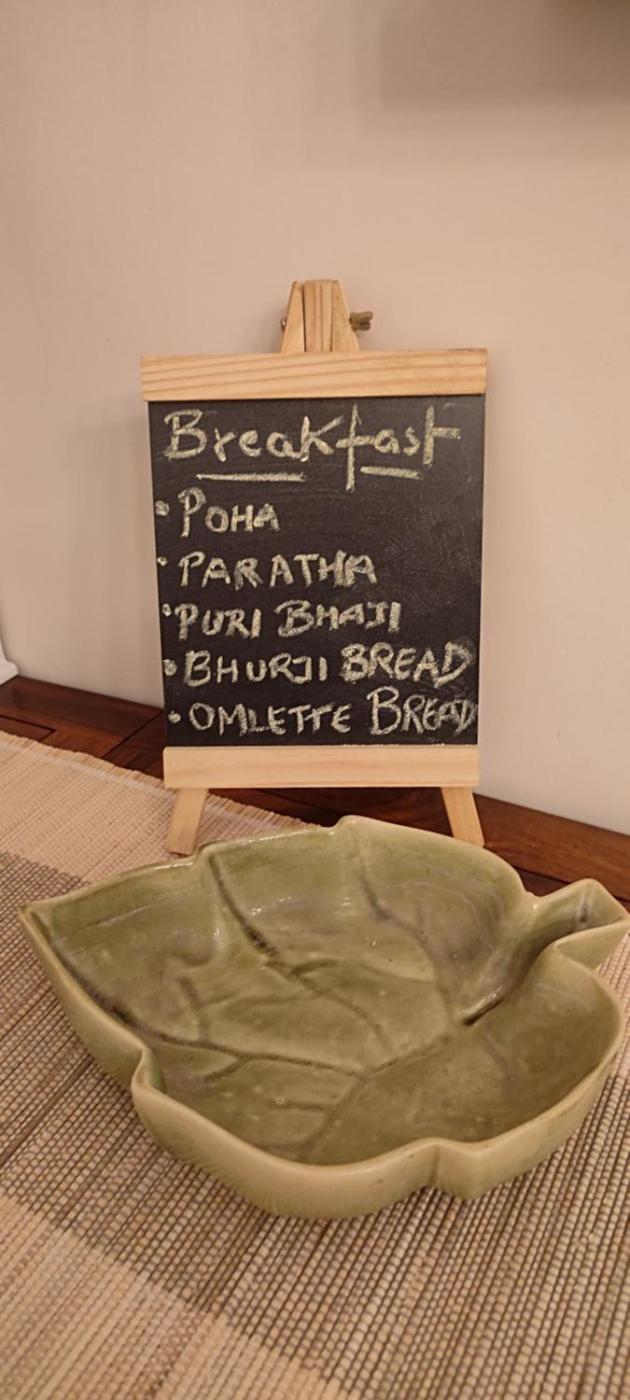 Breakfast
• POHA
• PARATHA
• PURI BHAJI
• BHURJI BREAD
• OMLETTE BREAD